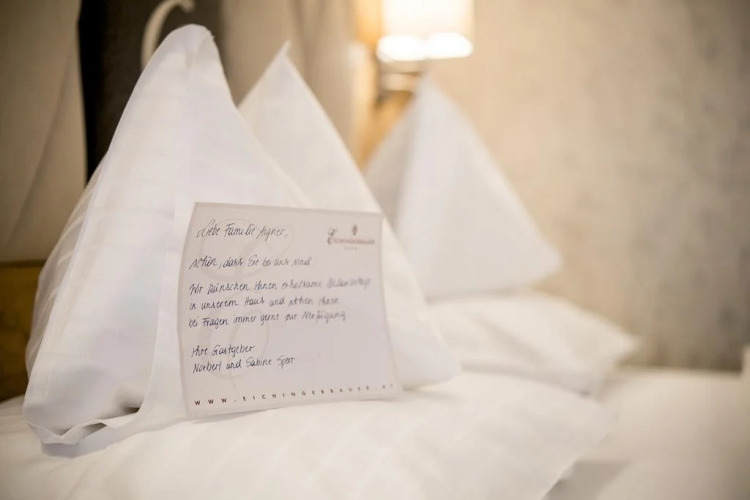 Liebe Familie Aigner,
EICHINGERBAUER
schön, dass Sie bei uns sind.
Wir wünschen Ihnen erholsame Urlaubstage
in unserem Haus und stehen Ihnen
bei Fragen immer gerne zur Verfügung
Ihre Gastgeber
Norbert und Sabine
WWW.EICHINGERBAUER.AT